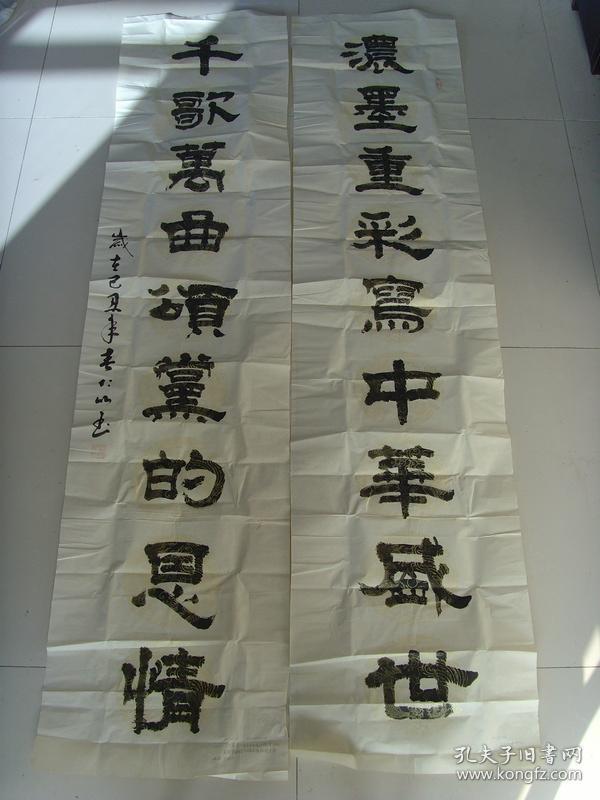 濃墨重彩寫中華盛世
千歌萬曲頌黨的恩情
歲在己丑年春仁山書
孔夫子旧书网
www.kongfz.com